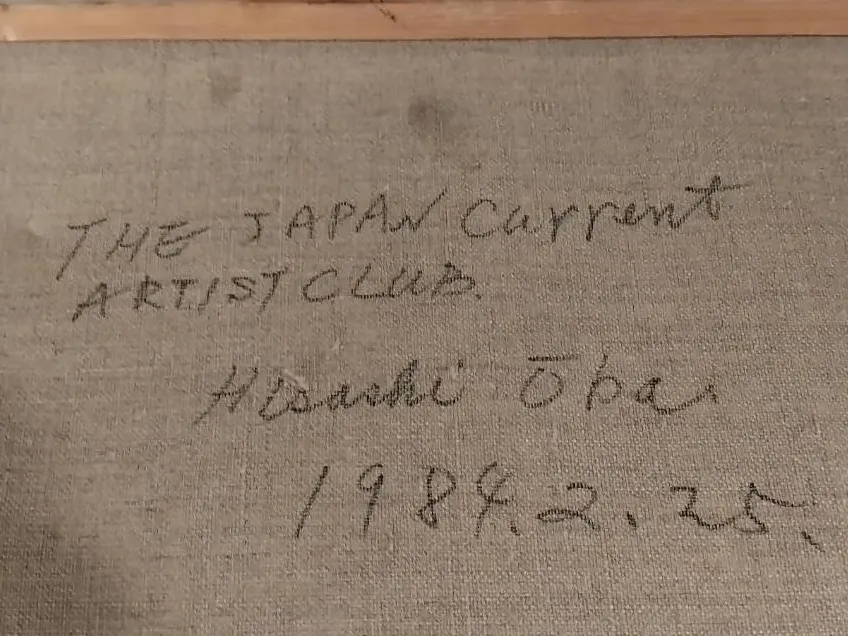 THE JAPAN Current
ARTIST CLUB.
Hisashi Ōba.
1984.2.25.